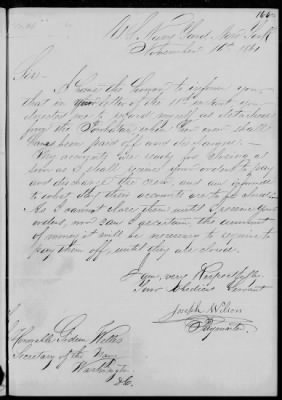 166
U.S. Navy Yard New York
November 16th 1861
Sir:
I have the honor to inform you
that in your letter of the 11th instant you
directed me to regard myself as detached
from the when her crew shall
have been paid off and discharged.
My accounts are ready for closing as
soon as I shall receive your orders to pay
and discharge the crew, and am informed
to what day their accounts are to be closed.
As I cannot close them until I receive your
orders, nor can I ascertain the amount
of money it will be necessary to require to
pay them off, until they are closed.
I am, very Respectfully
Your Obedient Servant
Joseph Wilson
Paymaster
Honorable Gideon Welles
Secretary of the Navy
Washington
D.C.